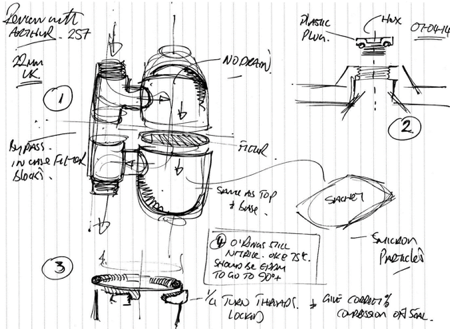 Review with
ARTHUR. 257
22mm
UK
①
NO DRAIN
BYPASS.
IN CASE FILTER
BLOCKS.
FILTER
SAME AS TOP
& BASE.
PLASTIC
PLUG.
HEX
07-04-14
②
SACHET
5 MICRON
PARTICLES
③
④ O'RINGS STILL
NITRILE. OK @ 75°.
SHOULD BE
TO GO TO 90°+
1/4 TURN THREADS.
LOCKED
& GIVE CORRECT
COMPRESSION OF SEAL